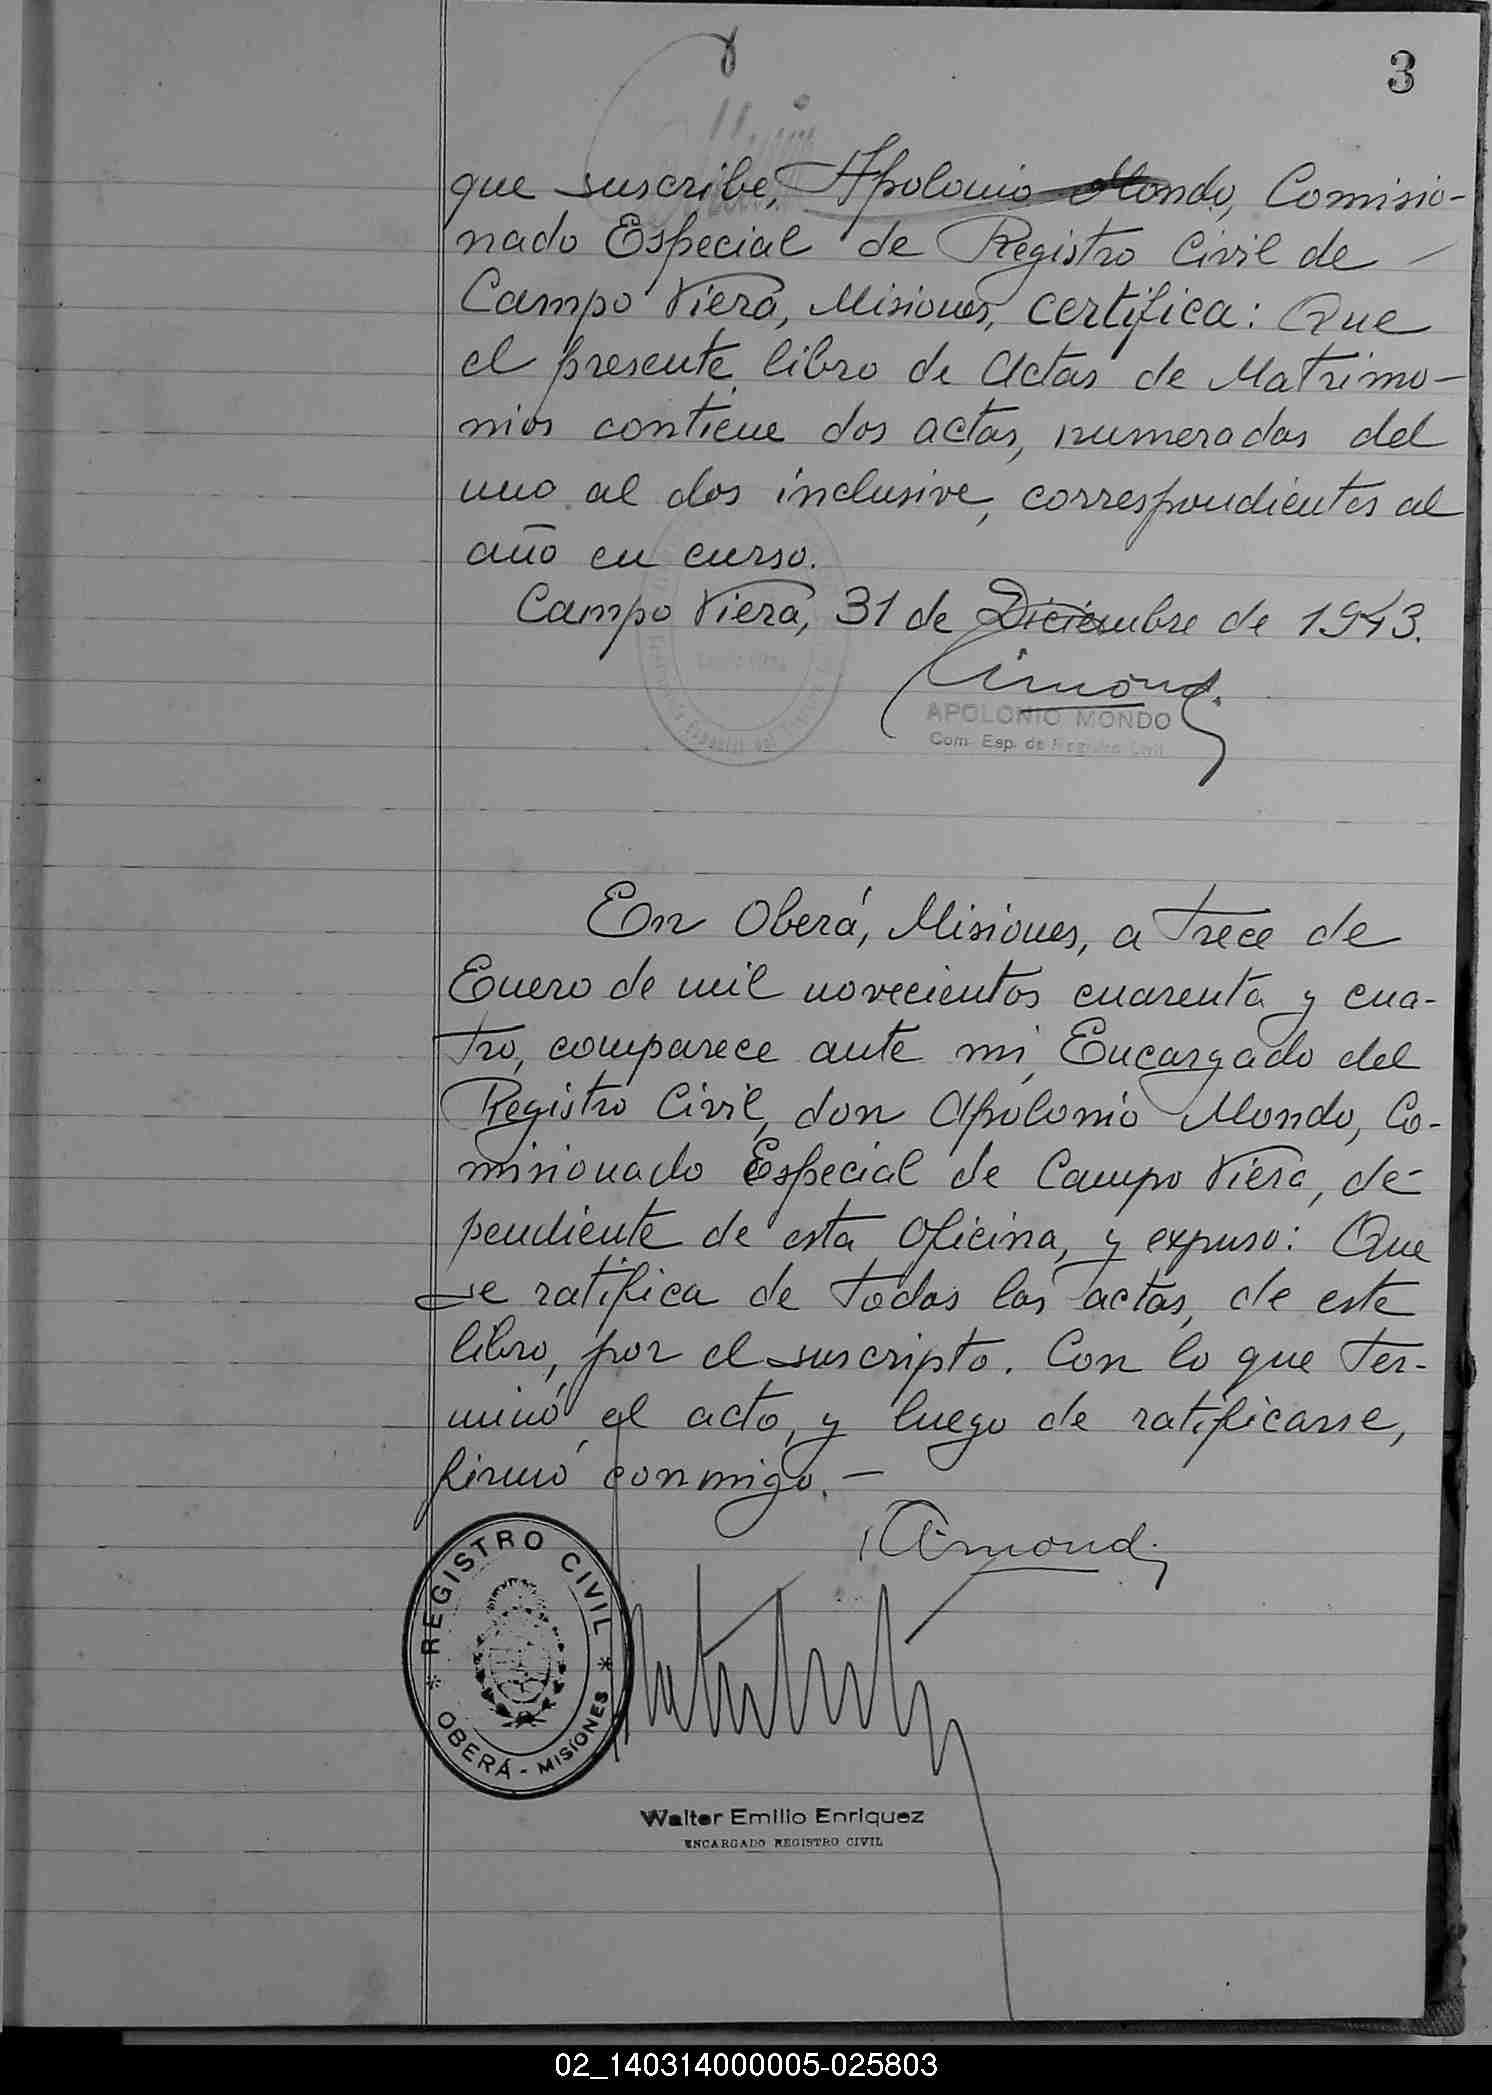 3
que suscribe, Apolonio Mondo, Comisio-
nado Especial de Registro Civil de
Campo Viera, Misiones, certifica: Que
el presente libro de Actas de Matrimo-
nios contiene dos actas, numeradas del
uno al dos inclusive, correspondientes al
año en curso.
Campo Viera, 31 de Diciembre de 1943.
APOLONIO MONDO
Com. Esp. de Registro Civil
En Oberá, Misiones, a trece de
Enero de mil novecientos cuarenta y cua-
tro, comparece ante mi, Encargado del
Registro Civil, don Apolonio Mondo, Co-
misionado Especial de Campo Viera, de-
pendiente de esta Oficina, y expuso: Que
se ratifica de todas las actas, de este
libro, por el suscripto. Con lo que ter-
minó el acto, y luego de ratificarse,
firmó conmigo. —
REGISTRO CIVIL
* OBERÁ - MISIONES *
Walter Emilio Enriquez
ENCARGADO REGISTRO CIVIL
02_140314000005-025803